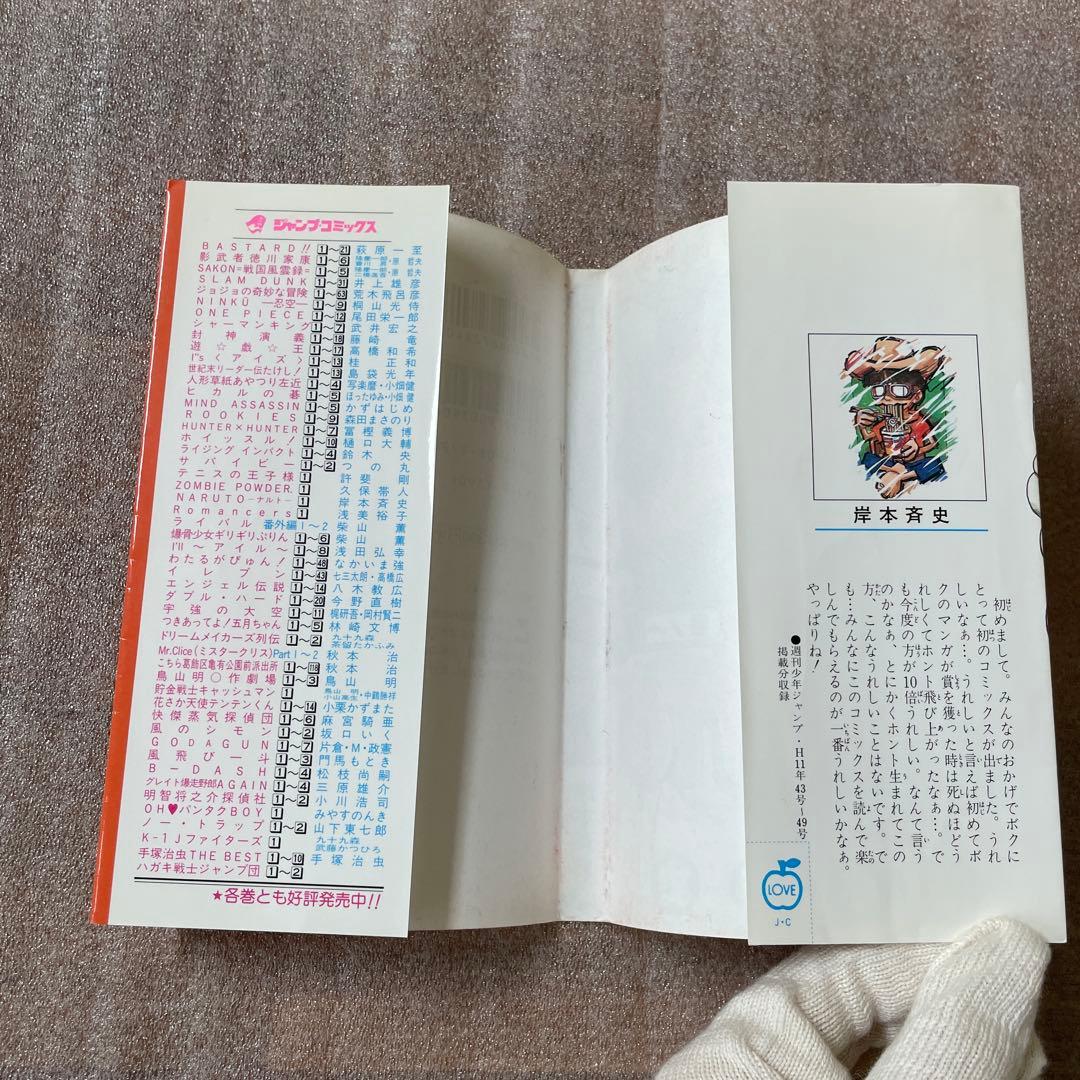 ジャンプ・コミックス
BASTARD!! 1～21 萩原一至
影武者徳川家康 1～6 隆慶一郎・原 哲夫
SAKON=戦国風雲録= 1～5 隆慶一郎・原 哲夫
SLAM DUNK 1～31 井上雄彦
ジョジョの奇妙な冒険 1～63 荒木飛呂彦
NINKŪ ―忍空― 1～9 桐山光侍
ONE PIECE 1～12 尾田栄一郎
シャーマンキング 1～7 武井宏之
封神演義 1～18 藤崎竜
遊☆戯☆王 1～17 高橋和希
I"s〈アイズ〉 1～13 桂正和
世紀末リーダー伝たけし! 1～13 島袋光年
人形草紙あやつり左近 1～4 写楽麿・小畑健
ヒカルの碁 1～5 ほったゆみ・小畑 健
MIND ASSASSIN 1～5 かずはじめ
ROOKIES 1～9 森田まさのり
HUNTER×HUNTER 1～7 冨樫義博
ホイッスル! 1～10 樋口大輔
ライジング インパクト 1～4 鈴木央
サバイビー 1～2 つの丸
テニスの王子様 1 許斐剛
ZOMBIE POWDER. 1 久保帯人
NARUTO―ナルト― 1 岸本斉史
Romancers 1 浅美裕子
ライバル 番外編1～2 柴山薫
爆骨少女ギリギリぷりん 1～6 柴山薫
I'll～アイル～ 1～9 浅田弘幸
わたるがぴゅん! 1～48 なかいま強
イレブン 1～43 七三太朗・高橋広
エンジェル伝説 1～14 八木教広
ダブル・ハード 1～20 今野直樹
宇強の大空 1～11 梶研吾・岡村賢二
つきあってよ!五月ちゃん 1～5 林崎文博
ドリームメイカーズ列伝 1～2 九十九森 茶留たかふみ
Mr.Clice(ミスタークリス) Part1～2 秋本治
こちら葛飾区亀有公園前派出所 1～118 秋本治
鳥山明○作劇場 1～3 鳥山明
貯金戦士キャッシュマン 1 鳥山 明 小山高生・中鶴勝祥
花さか天使テンテンくん 1～14 小栗かずまた
快傑蒸気探偵団 1～6 麻宮騎亜
風のシモン 1～2 坂口いく
GODAGUN 1～7 片倉・M・政憲
風飛び一斗 1～3 門馬もとき
B-DASH 1～4 松枝尚嗣
グレイト爆走野郎AGAIN 1～4 三原雄介
明智将之介探偵社 1～2 小川浩司
OH♥バンタクBOY 1 みやすのんき
ノー・トラップ 1～2 山下東七郎
K-1 Jファイターズ 1 九十九森 武藤かつひろ
手塚治虫THE BEST 1～10 手塚治虫
ハガキ戦士ジャンプ団 1～2
★各巻とも好評発売中!!
岸本斉史
初めまして。みんなのおかげでボクに
とって初のコミックスが出ました。うれ
しいなぁ…。うれしいと言えば初めてボ
クのマンガが賞を獲った時は死ぬほどう
れしくてホント飛び上がったなぁ…。で
も今度の方が10倍うれしい。なんて言う
のかなぁ、とにかくホント生まれてこの
方、こんなうれしいことはないです。で
も…みんなにこのコミックスを読んで楽
しんでもらえるのが一番うれしいかなぁ。
やっぱりね!
●週刊少年ジャンプ・H11年43号～49号
掲載分収録
LOVE
J・C